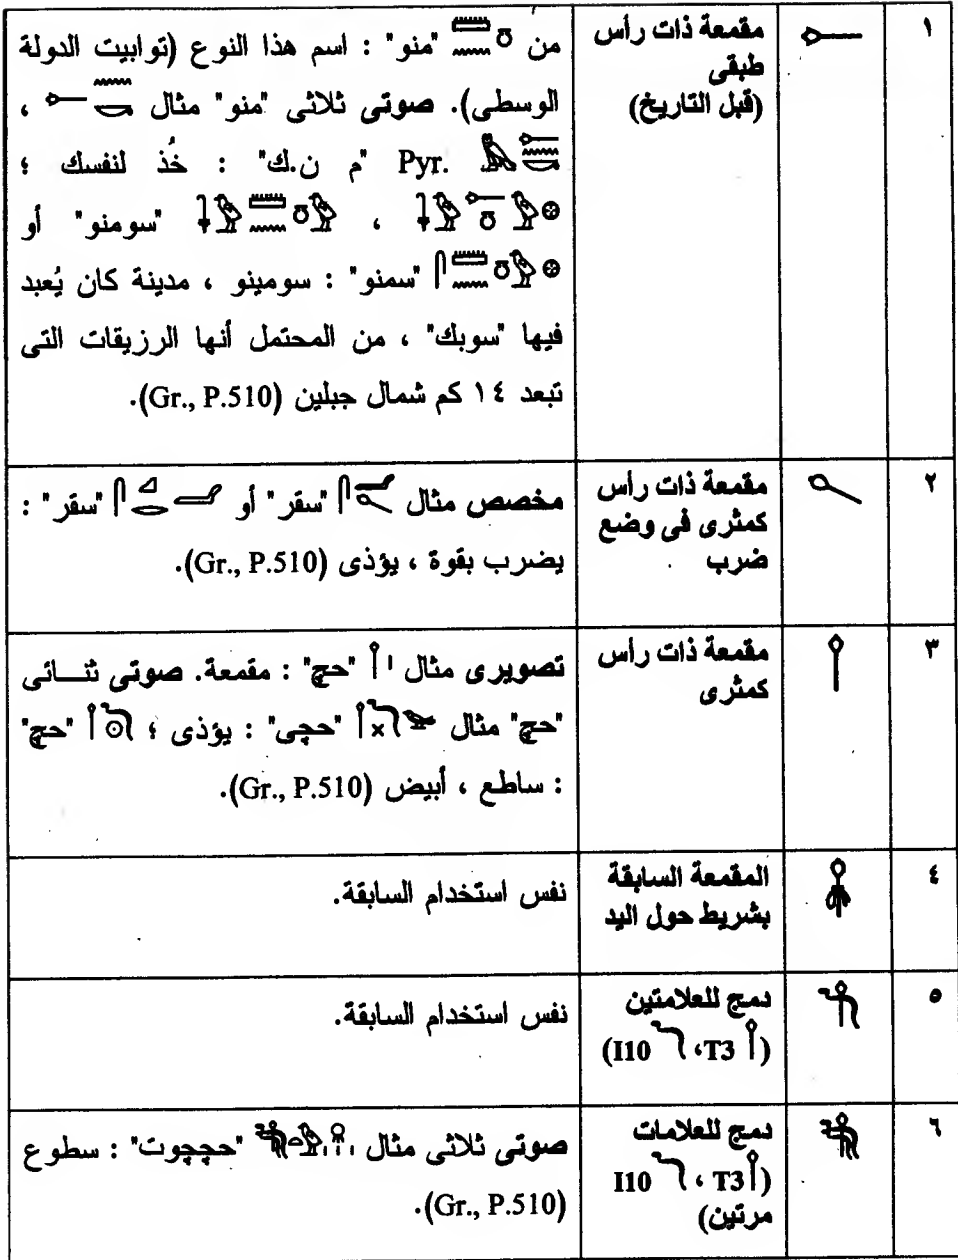 ١
مقمعة ذات رأس
طبقى
(قبل التاريخ)
من "منو" : اسم هذا النوع (توابيت الدولة
الوسطى). صوتى ثلاثى "منو" مثال ،
Pyr. "م ن.ك" : خُذ لنفسك ؛
، "سومنو" أو
"سمنو" : سومينو ، مدينة كان يُعبد
فيها "سوبك" ، من المحتمل أنها الرزيقات التى
تبعد ١٤ كم شمال جبلين (Gr., P.510).
٢
مقمعة ذات رأس
كمثرى فى وضع
ضرب
مخصص مثال "سقر" أو "سقر" :
يضرب بقوة ، يؤذى (Gr., P.510).
٣
مقمعة ذات رأس
كمثرى
تصويرى مثال "حچ" : مقمعة. صوتى ثنـــائى
"حچ" مثال "حچى" : يؤذى ؛ "حچ"
: ساطع ، أبيض (Gr., P.510).
٤
المقمعة السابقة
بشريط حول اليد
نفس استخدام السابقة.
٥
دمج للعلامتين
(T3 ، I10)
نفس استخدام السابقة.
٦
دمج للعلامات
(T3 ، I10
مرتين)
صوتى ثلاثى مثال "حچچوت" : سطوع
(Gr., P.510).